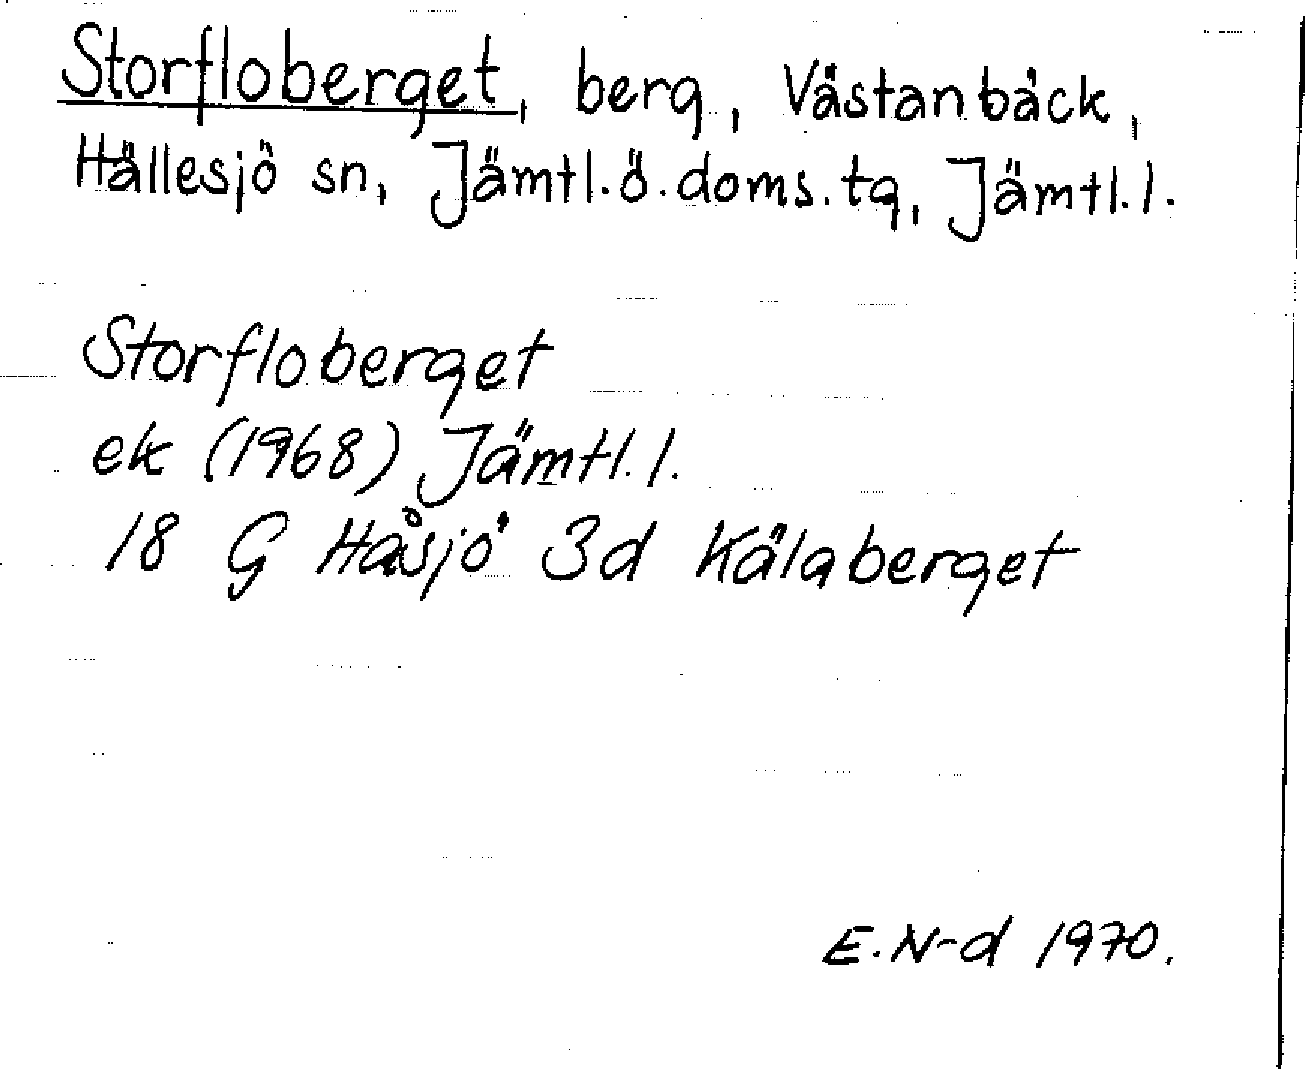 Storfloberget, berg, Västanbäck,
Hällesjö sn, Jämtl.ö.doms.tg, Jämtl.l.
Storfloberget
ek (1968) Jämtl.l.
18 G Håsjö 3d Kälaberget
E.N-d 1970.